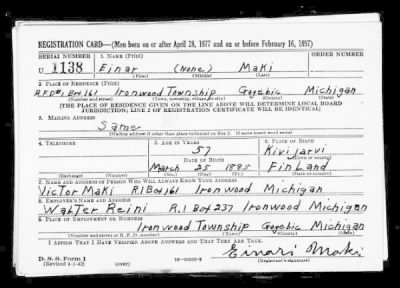 REGISTRATION CARD—(Men born on or after April 28, 1877 and on or before February 16, 1897)
SERIAL NUMBER 1. NAME (Print) ORDER NUMBER
U 1138 Einar (None) Maki
(First) (Middle) (Last)
2. PLACE OF RESIDENCE (Print)
R.F.D#1 Box 161 Ironwood Township Gogebic Michigan
(Number and street) (Town, township, village, or city) (County) (State)
[THE PLACE OF RESIDENCE GIVEN ON THE LINE ABOVE WILL DETERMINE LOCAL BOARD
JURISDICTION; LINE 2 OF REGISTRATION CERTIFICATE WILL BE IDENTICAL]
3. MAILING ADDRESS
Same
[Mailing address if other than place indicated on line 2. If same insert word same]
4. TELEPHONE 5. AGE IN YEARS 6. PLACE OF BIRTH
57 Kivijarvi
DATE OF BIRTH (Town or county)
March 25 1885 Finland
(Exchange) (Number) (Mo.) (Day) (Yr.) (State or country)
7. NAME AND ADDRESS OF PERSON WHO WILL ALWAYS KNOW YOUR ADDRESS
Victor Maki R.1 Box 161 Ironwood Michigan
8. EMPLOYER'S NAME AND ADDRESS
Walter Reini R.1 Box 237 Ironwood Michigan
9. PLACE OF EMPLOYMENT OR BUSINESS
Ironwood Township Gogebic Michigan
(Number and street or R. F. D. number) (Town) (County) (State)
I AFFIRM THAT I HAVE VERIFIED ABOVE ANSWERS AND THAT THEY ARE TRUE.
D. S. S. Form 1 Einari Maki
(Revised 4-1-42) (over) (Registrant's signature)